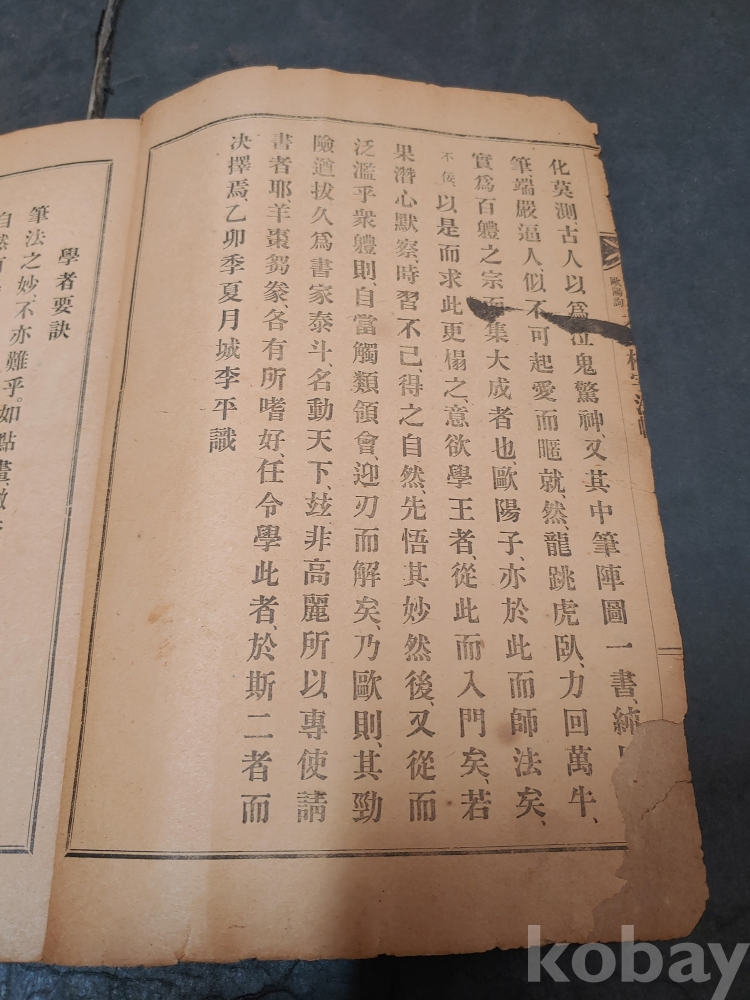 化莫測古人以爲泣鬼驚神、又其中筆陣圖一書、純
筆、端嚴逼人、似不可起愛而暱就、然、龍跳虎臥、力回萬牛、
實爲百軆之宗而集大成者也歐陽子、亦於此而師法矣、
不佞、以是而求此更㩉之、意欲學王者、從此而入門矣、若
果潛心默察、時習不已、得之自然、先悟其妙然後、又從而
泛濫乎衆軆則、自當觸類領會、迎刃而解矣、乃歐則、其勁
險遒拔久爲書家泰斗、名動天下、玆非高麗所以專使請
書者耶、羊棗芻豢、各有所嗜好、任令學此者、於斯二者而
决擇焉、乙卯季夏月城李平識
歐陽詢
學者要訣
筆法之妙、不亦難乎。如點畫
自然
kobay